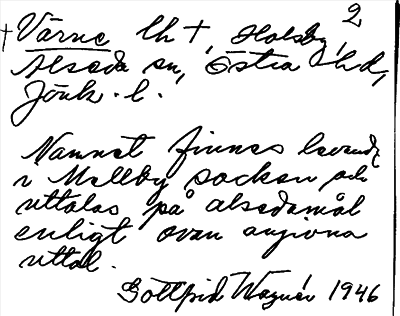 2
† Värne lh †, Holsby,
Alseda sn, Östra hd,
Jönk. l.
Namnet finnes levande
i Mellby socken och
uttalas på alsedamål
enligt ovan angivna
uttal.
Gottfrid Wagnér 1946